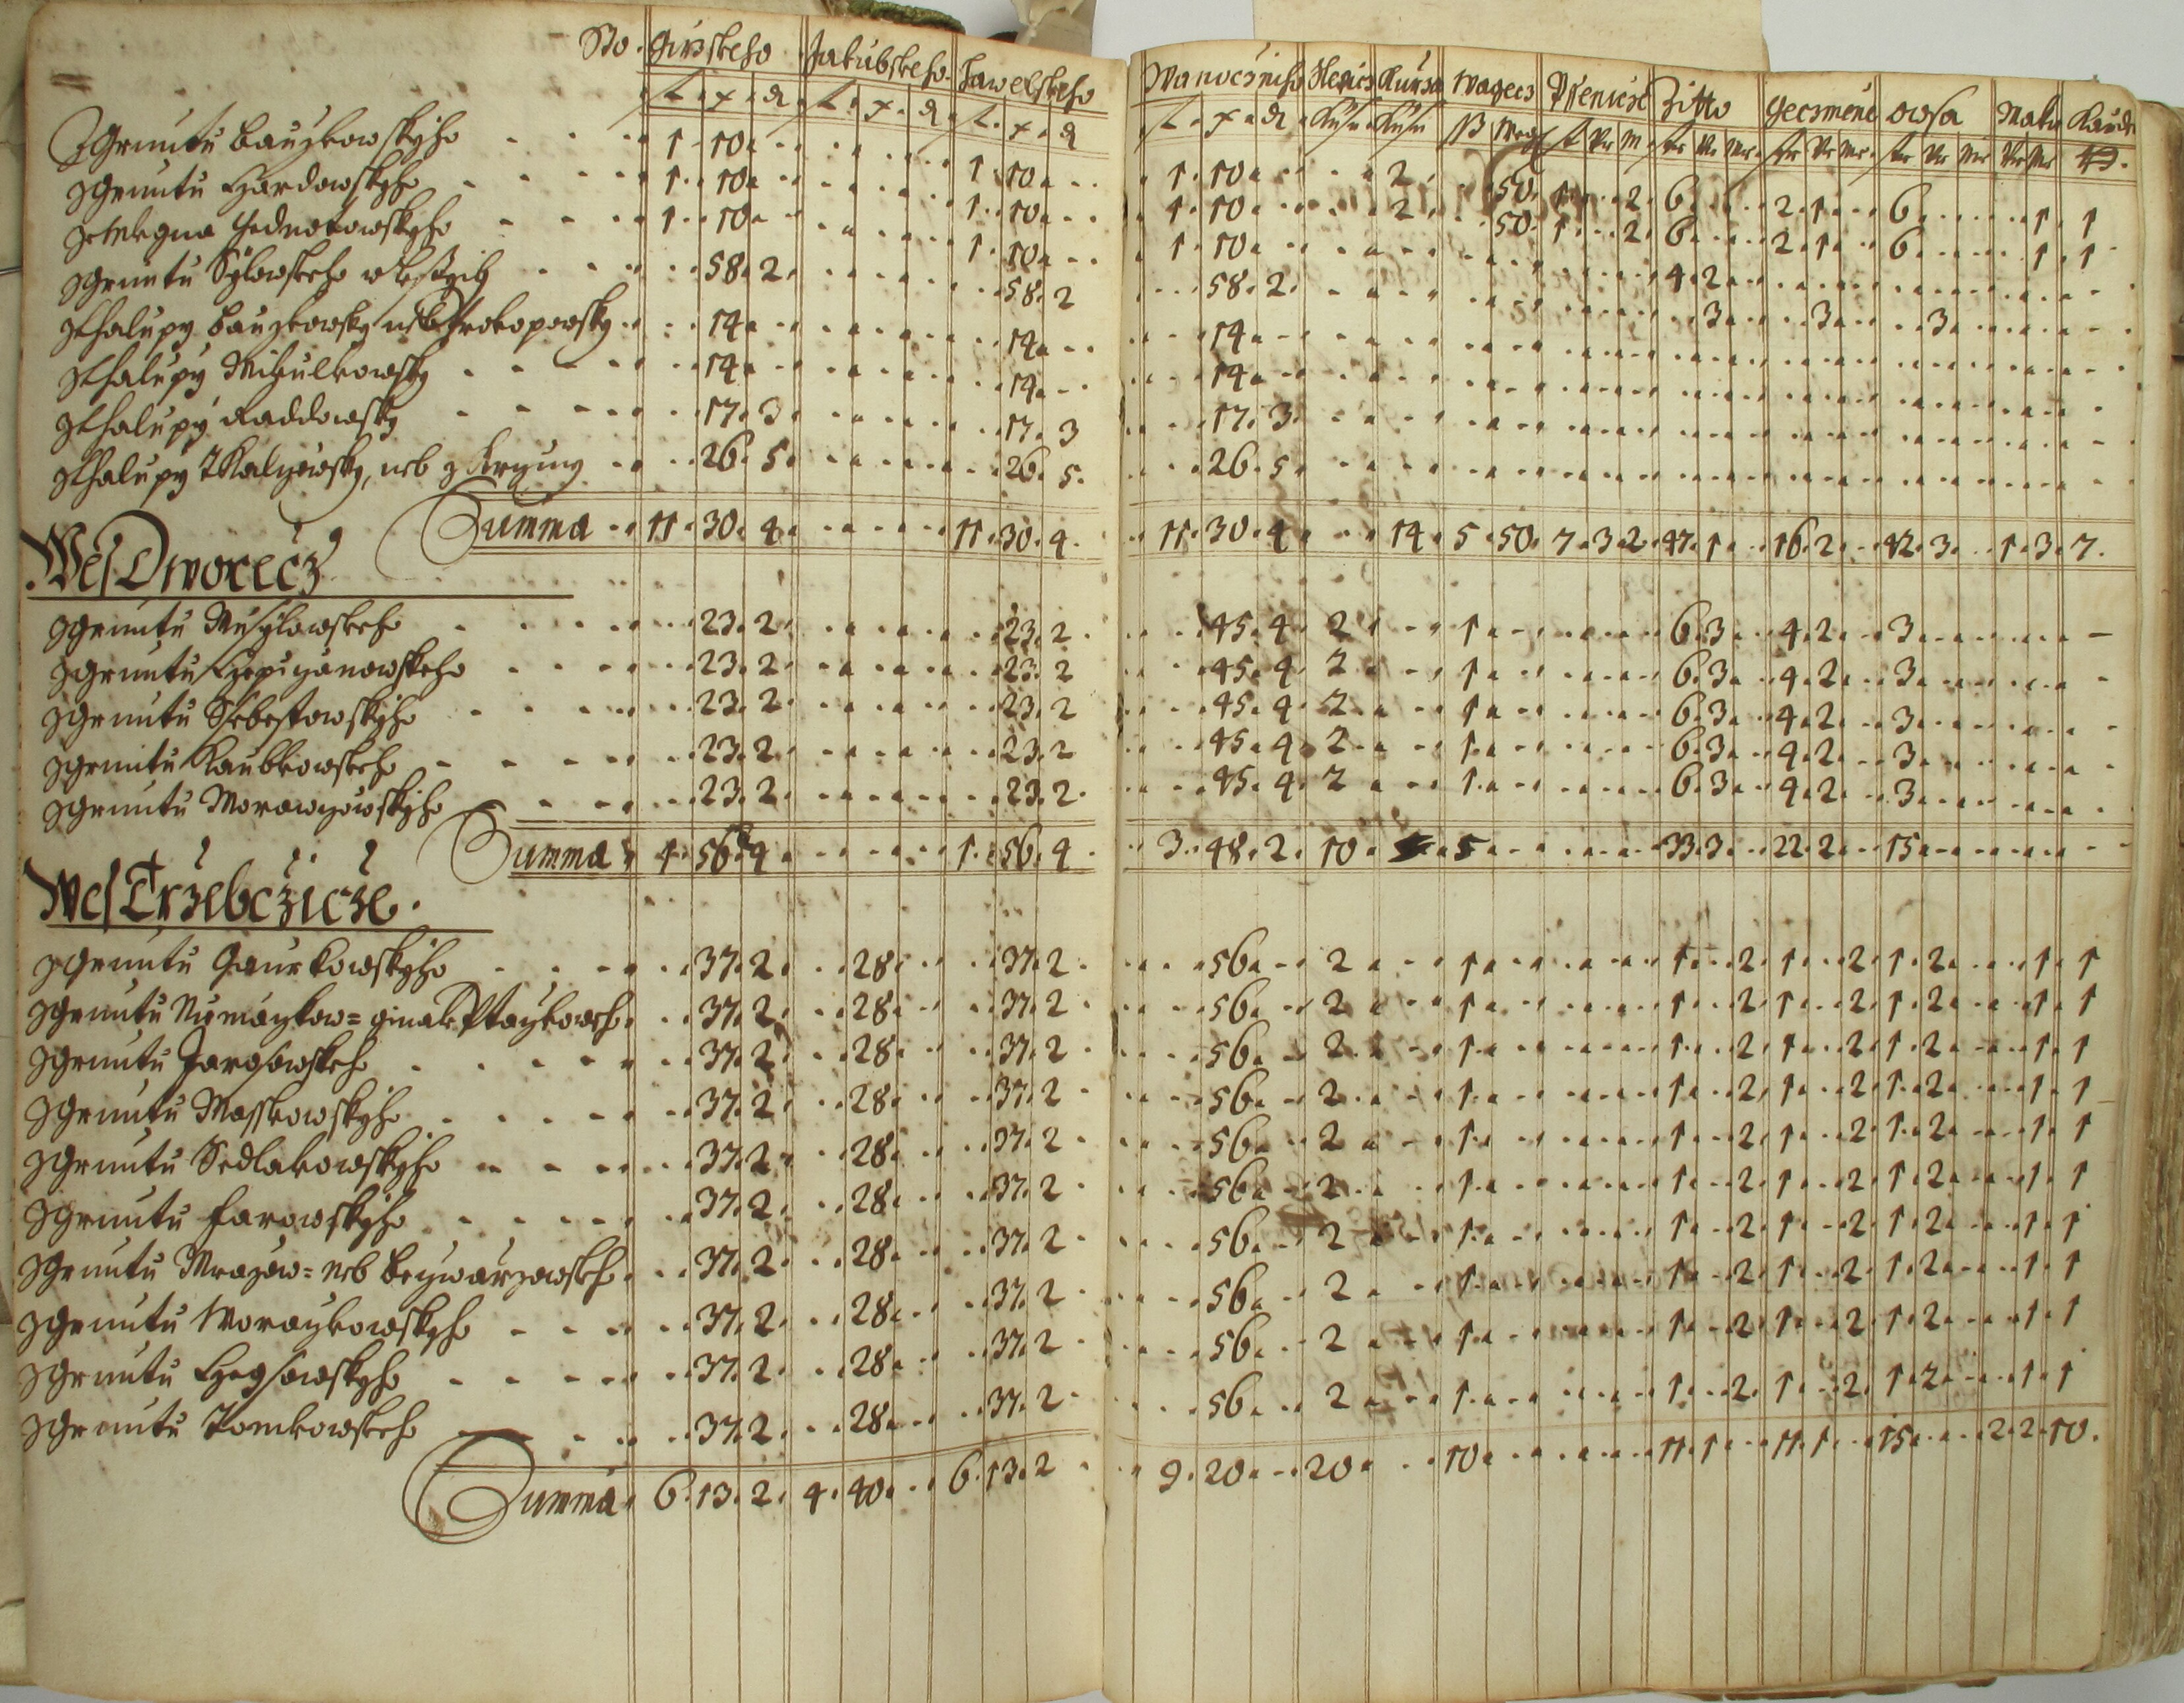 Sto. Girskeho Jakubskeho Hawelskeho Wanocżniho Slepicz Kurżat Wagecz Psenicze Żitto Geczmene Owsa Maku Kaude
Z Gruntu Bauzkowskyho 1 10 1 10 1 10 2 50 1 2 6 2 1 6 1 1
z Gruntu Hardowskyho 1 10 1 10 1 10 2 50 1 2 6 2 1 6 1 1
1 10 1 10 1 10 4 2
z Gruntu 58 2 58 2 58 2 3 3 3
z Chalupy Bauzkowsky neb Prokopowsky 14 14 14
z Chalupy Mikulkowsky 14 14 14
z Chalupy Raddowsky 17 3 17 3 17 3
z Chalupy neb z 26 5 26 5 26 5
Summa 11 30 4 11 30 4 11 30 4 14 5 50 7 3 2 47 1 16 2 42 3 1 3 7
Wes Dworecż
z Gruntu Musylowskeho 23 2 23 2 45 4 2 1 6 3 4 2 3
z Gruntu 23 2 23 2 45 4 2 1 6 3 4 2 3
z Gruntu Ssebestowskyho 23 2 23 2 45 4 2 1 6 3 4 2 3
z Gruntu Kaubkowskeho 23 2 23 2 45 4 2 1 6 3 4 2 3
z Gruntu Morawczowskyho 23 2 23 2 45 4 2 1 6 3 4 2 3
Summa 1 56 4 1 56 4 3 48 2 10 5 33 3 22 2 15
Wes Trżebcżicże
z Gruntu Gaurkowskyho 37 2 28 37 2 56 2 1 1 2 1 2 1 2 1 1
z Gruntu ginak Ptaczkowsk. 37 2 28 37 2 56 2 1 1 2 1 2 1 2 1 1
z Gruntu Jarossowskeho 37 2 28 37 2 56 2 1 1 2 1 2 1 2 1 1
z Gruntu Masskowskyho 37 2 28 37 2 56 2 1 1 2 1 2 1 2 1 1
z Gruntu Sedlakowskyho 37 2 28 37 2 56 2 1 1 2 1 2 1 2 1 1
z Gruntu Farowskyho 37 2 28 37 2 56 2 1 1 2 1 2 1 2 1 1
z Gruntu Mrazow= neb 37 2 28 37 2 56 2 1 1 2 1 2 1 2 1 1
z Gruntu Woraczkowskyho 37 2 28 37 2 56 2 1 1 2 1 2 1 2 1 1
z Gruntu 37 2 28 37 2 56 2 1 1 2 1 2 1 2 1 1
z Gruntu Tomkowskeho 37 2 28 37 2 56 2 1 1 2 1 2 1 2 1 1
Summa 6 13 2 4 40 6 13 2 9 20 20 10 11 1 11 1 15 2 2 10